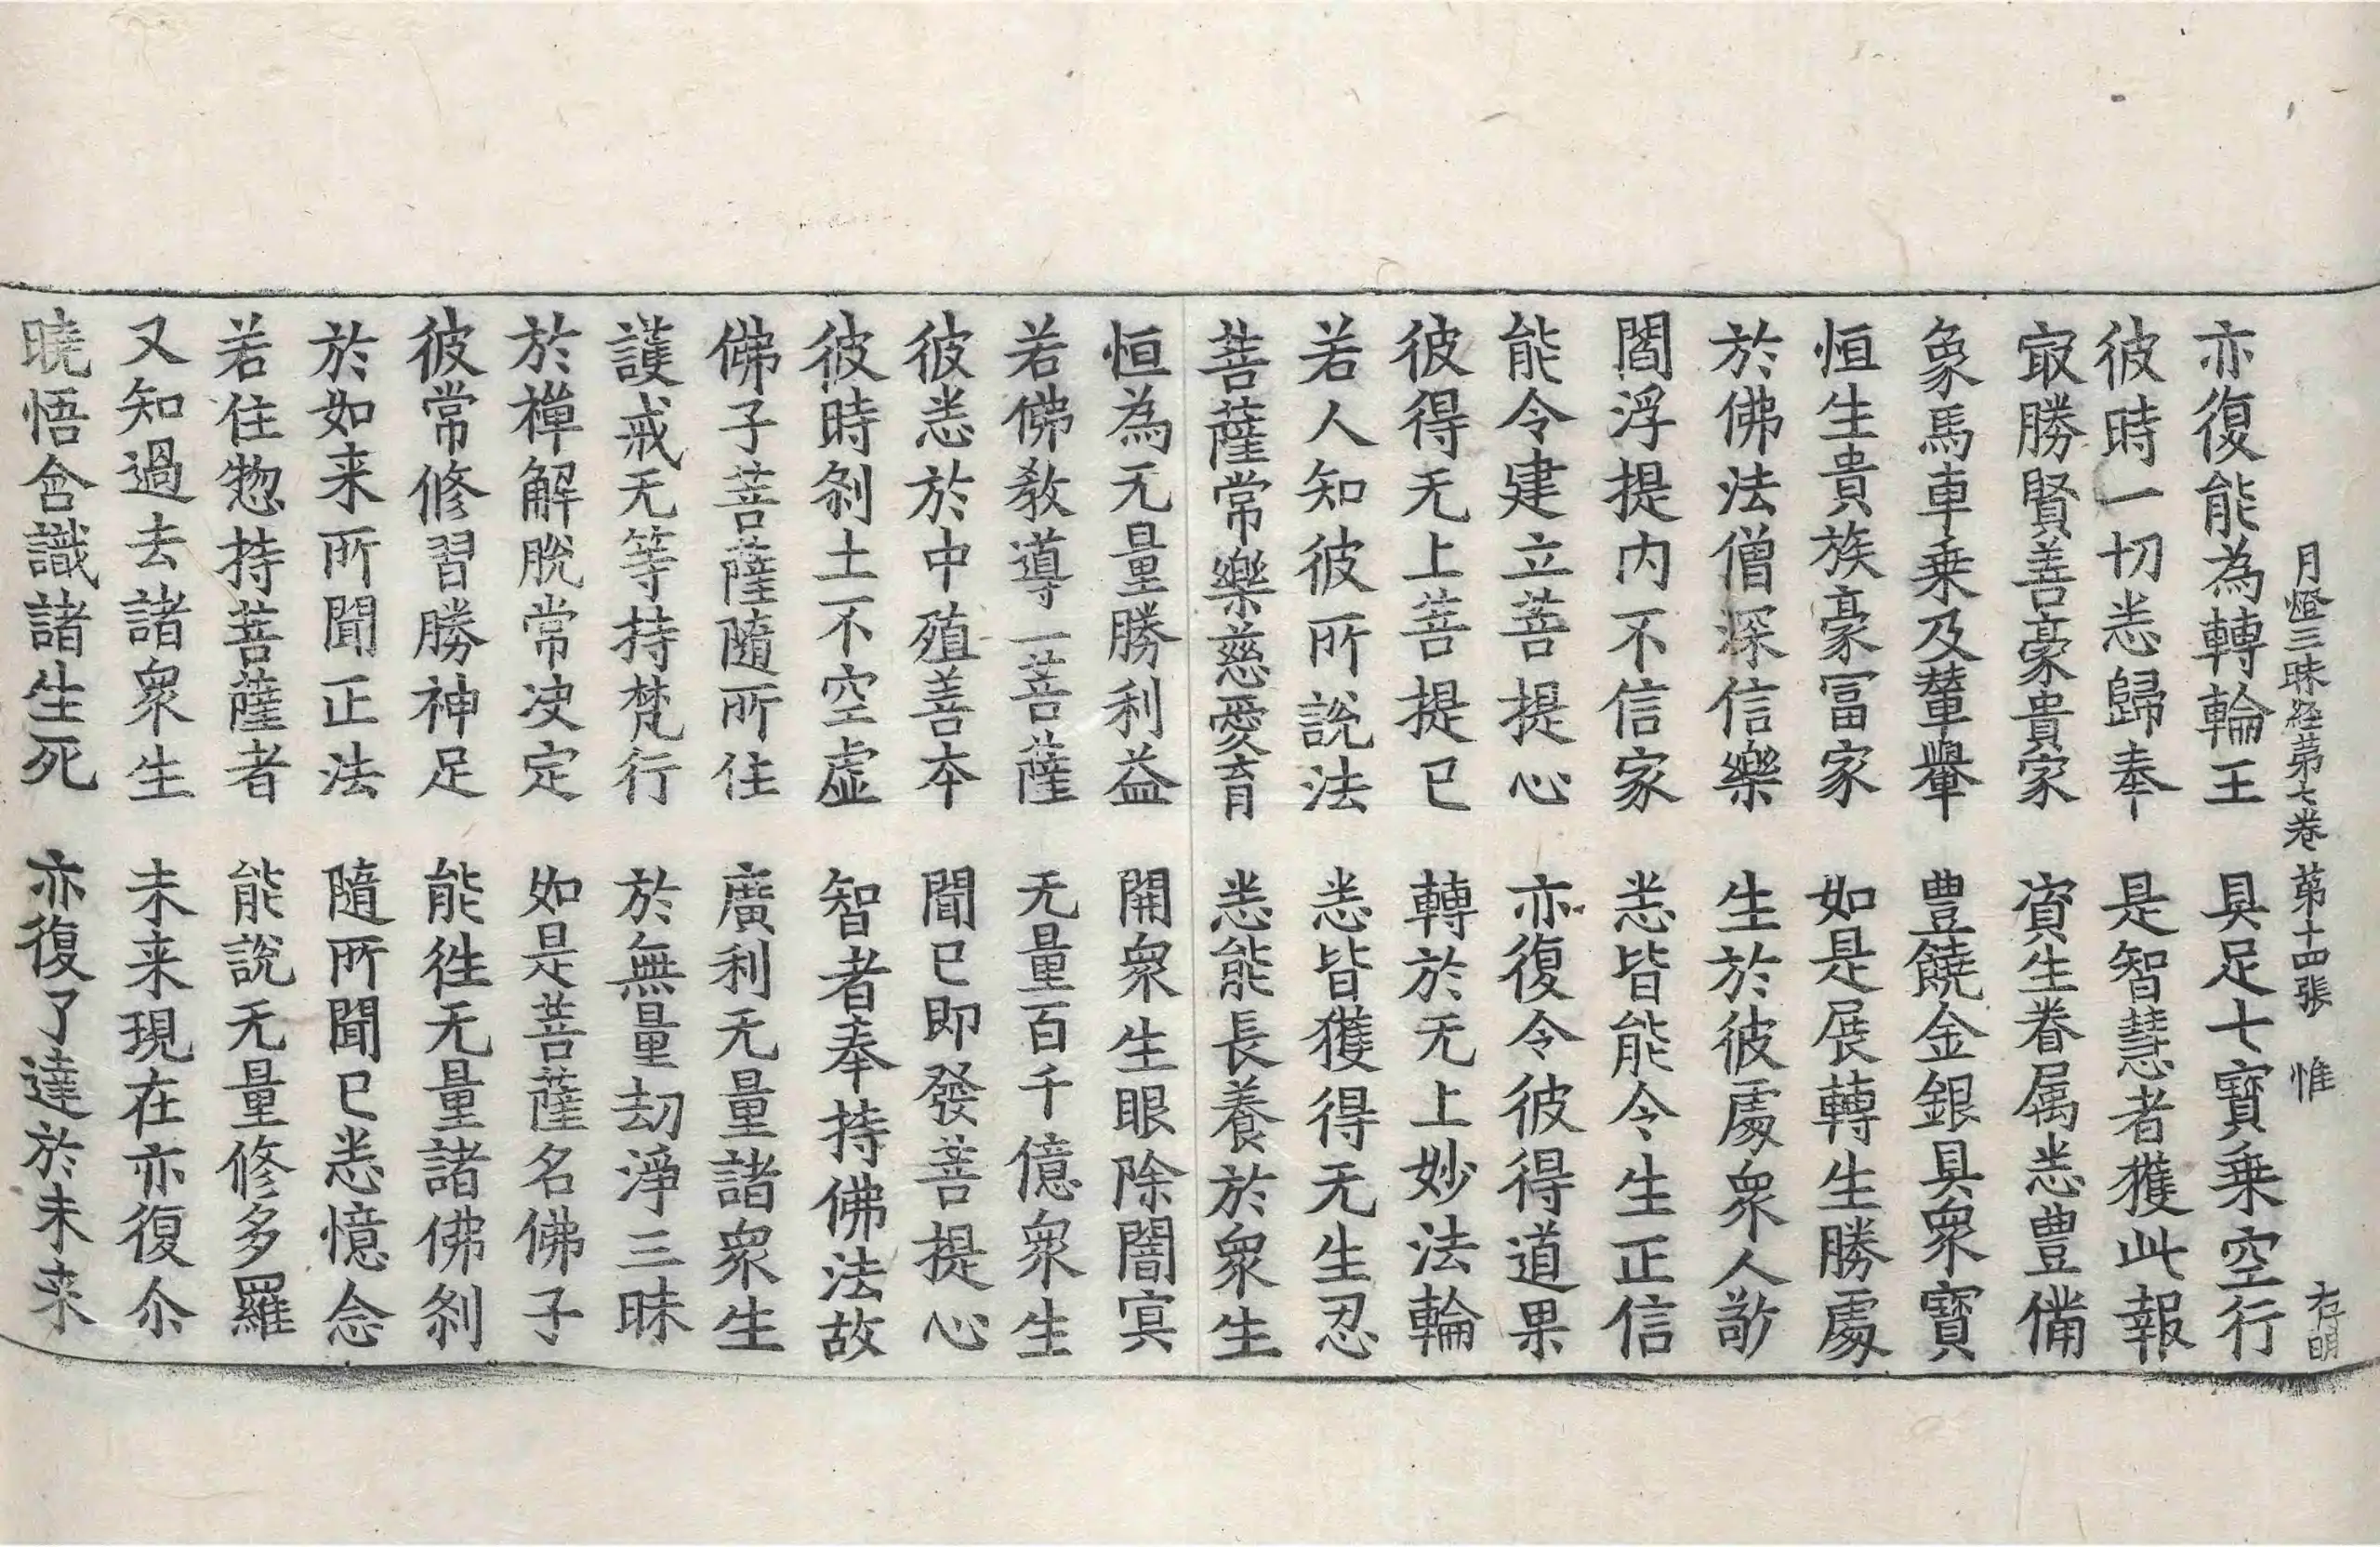 月燈三昧経第七巻 第十四張 惟 存明
亦復能為轉輪王 具足七寶乗空行
彼時一切悉歸奉 是智慧者獲此報
㝡勝賢善豪貴家 資生眷属悉豊俻
象馬車乗及輦轝 豊饒金銀具衆寶
恒生貴族豪冨家 如是展轉生勝處
於佛法僧深信樂 生於彼處衆人敬
閻浮提内不信家 悉皆能令生正信
能令建立菩提心 亦復令彼得道果
彼得无上菩提已 轉於无上妙法輪
若人知彼所說法 悉皆獲得无生忍
菩薩常樂慈愛育 悉能長養於衆生
恒為无量勝利益 開衆生眼除闇冥
若佛教導一菩薩 无量百千億衆生
彼悉於中殖善本 聞已即發菩提心
彼時刹土不空虛 智者奉持佛法故
佛子菩薩隨所住 廣利无量諸衆生
護戒无等持梵行 於無量劫淨三昧
於禪解脫常决定 如是菩薩名佛子
彼常修習勝神足 能往无量諸佛刹
於如来所聞正法 隨所聞已悉憶念
若住惣持菩薩者 能說无量修多羅
又知過去諸衆生 未来現在亦復尒
曉悟含識諸生死 亦復了達於未来